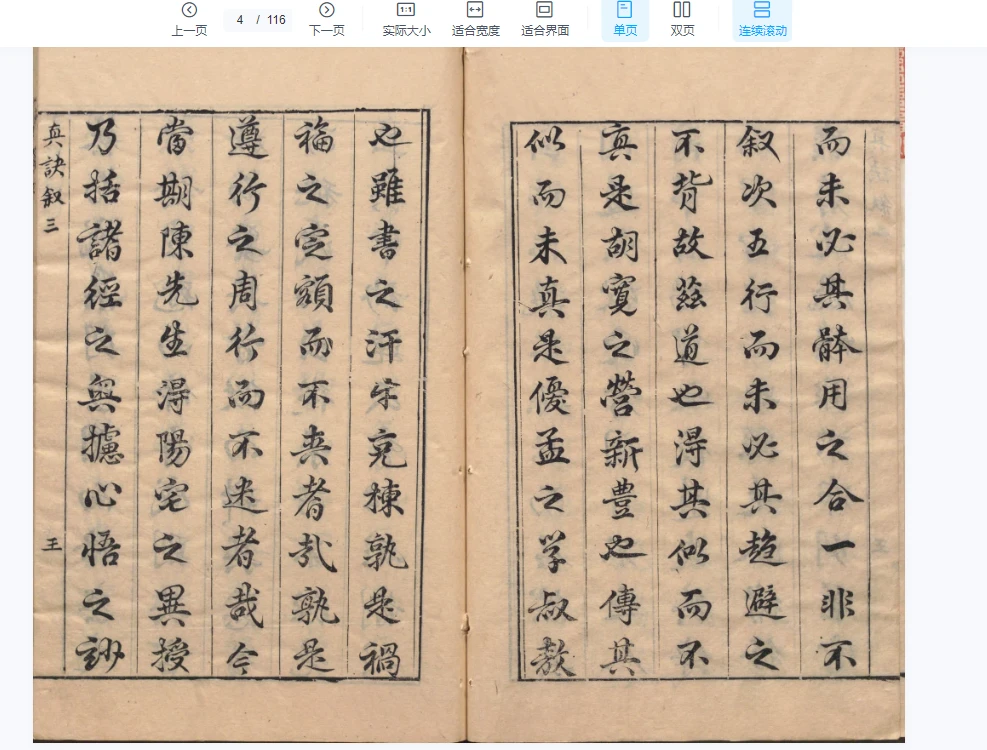 上一页
4 / 116
下一页
1:1
实际大小
适合宽度
适合界面
单页
双页
连续滚动
而未必其骵用之合一非不
叙次五行而未必其趋避之
不背故茲道也淂其似而不
真是胡寬之營新豊也傳其
似而未真是優孟之学叔敖
也雖書之汗牛充棟孰是禍
福之定額而不爽者哉孰是
遵行之周行而不迷者哉今
當期陳先生淂陽宅之異授
乃括諸經之奥攄心悟之玅
真訣叙三
王